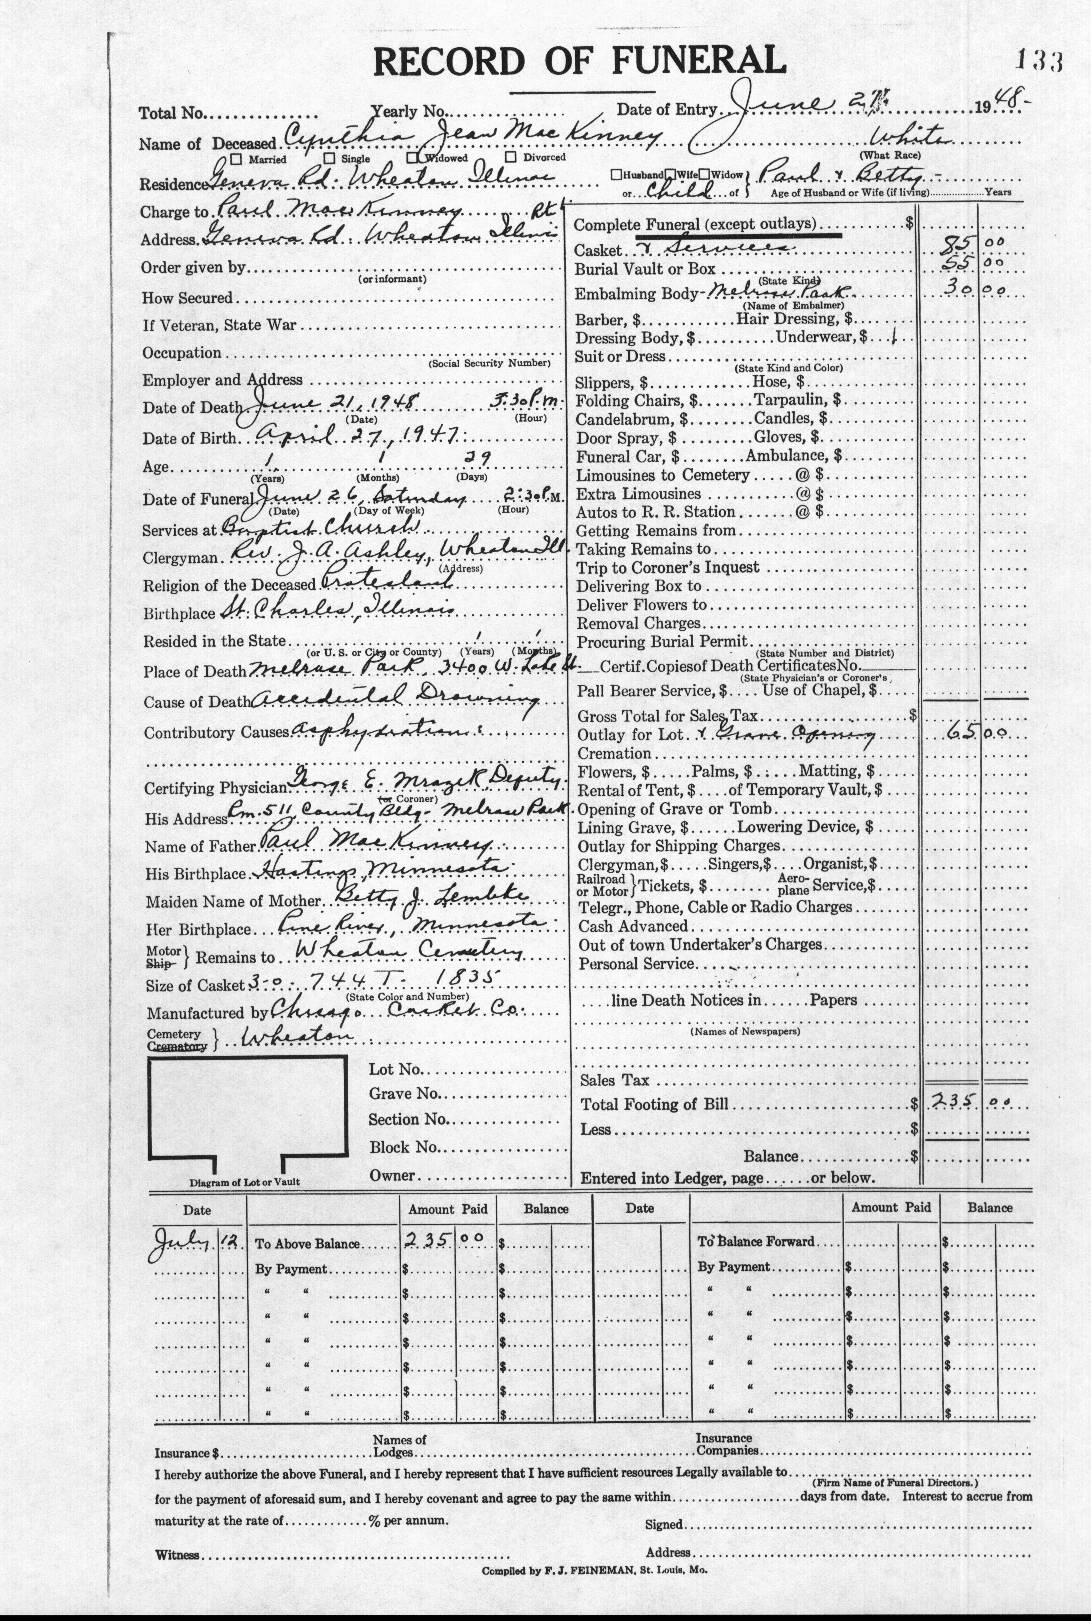 RECORD OF FUNERAL
133
Total No. Yearly No. Date of Entry June 27th 1948-
Name of Deceased Cynthia Jean MacKinney White
Married Single Widowed Divorced (What Race)
Residence Geneva Rd. Wheaton Illinois Husband Wife Widow or Child of } Paul & Betty -
Age of Husband or Wife (if living) Years
Charge to Paul MacKinney Rt 1
Address Geneva Rd. Wheaton Illinois
Order given by
(or informant)
How Secured
If Veteran, State War
Occupation
(Social Security Number)
Employer and Address
Date of Death June 21, 1948 3:30 P.m.
(Date) (Hour)
Date of Birth April 27, 1947
Age 1 1 29
(Years) (Months) (Days)
Date of Funeral June 26, Saturday 2:30 P.M.
(Date) (Day of Week) (Hour)
Services at Baptist Church
Clergyman Rev. J. A. Ashley, Wheaton Ill.
(Address)
Religion of the Deceased Protestant
Birthplace St. Charles, Illinois
Resided in the State 1 1
(or U. S. or City or County) (Years) (Months)
Place of Death Melrose Park, 3400 W. Lake St.
Cause of Death Accidental Drowning
Contributory Causes asphyxiation
Certifying Physician George E. Mrazek, Deputy
(or Coroner)
His Address Rm. 511, County Bldg - Melrose Park
Name of Father Paul MacKinney
His Birthplace Hastings, Minnesota
Maiden Name of Mother Betty J. Lembke
Her Birthplace Pine River, Minnesota
Motor Ship } Remains to Wheaton Cemetery
Size of Casket 3-0 - 744 T - 1835
(State Color and Number)
Manufactured by Chicago Casket Co.
Cemetery Crematory } Wheaton
Lot No.
Grave No.
Section No.
Block No.
Owner
Diagram of Lot or Vault
Complete Funeral (except outlays) $
Casket & Services 85 00
Burial Vault or Box 55 00
(State Kind)
Embalming Body- Melrose Park 30 00
(Name of Embalmer)
Barber, $ Hair Dressing, $
Dressing Body, $ Underwear, $
Suit or Dress
(State Kind and Color)
Slippers, $ Hose, $
Folding Chairs, $ Tarpaulin, $
Candelabrum, $ Candles, $
Door Spray, $ Gloves, $
Funeral Car, $ Ambulance, $
Limousines to Cemetery @ $
Extra Limousines @ $
Autos to R. R. Station @ $
Getting Remains from
Taking Remains to
Trip to Coroner's Inquest
Delivering Box to
Deliver Flowers to
Removal Charges
Procuring Burial Permit
(State Number and District)
Certif. Copies of Death Certificates No.
(State Physician's or Coroner's
Pall Bearer Service, $ Use of Chapel, $
Gross Total for Sales Tax $
Outlay for Lot & Grave Opening 65 00
Cremation
Flowers, $ Palms, $ Matting, $
Rental of Tent, $ of Temporary Vault, $
Opening of Grave or Tomb
Lining Grave, $ Lowering Device, $
Outlay for Shipping Charges
Clergyman, $ Singers, $ Organist, $
Railroad or Motor } Tickets, $ Aero-plane Service, $
Telegr., Phone, Cable or Radio Charges
Cash Advanced
Out of town Undertaker's Charges
Personal Service
line Death Notices in Papers
(Names of Newspapers)
Sales Tax
Total Footing of Bill $ 235 00
Less $
Balance $
Entered into Ledger, page or below.
Date Amount Paid Balance Date Amount Paid Balance
July 12 To Above Balance 235 00 $ To Balance Forward $
By Payment $ $ By Payment $ $
" " $ $ " " $ $
" " $ $ " " $ $
" " $ $ " " $ $
" " $ $ " " $ $
" " $ $ " " $ $
" " $ $ " " $ $
Insurance $ Names of Lodges Insurance Companies
I hereby authorize the above Funeral, and I hereby represent that I have sufficient resources Legally available to
(Firm Name of Funeral Directors.)
for the payment of aforesaid sum, and I hereby covenant and agree to pay the same within days from date. Interest to accrue from
maturity at the rate of % per annum. Signed
Witness Address
Compiled by F. J. FEINEMAN, St. Louis, Mo.